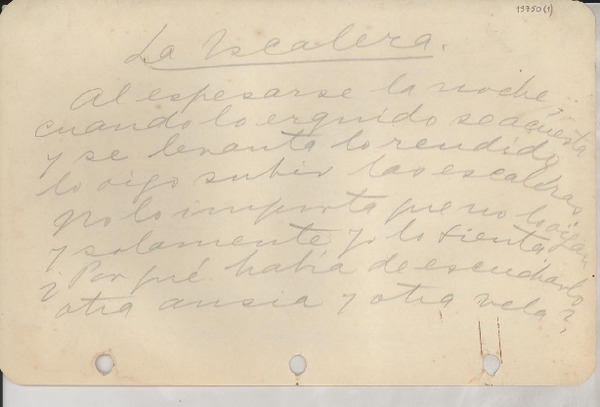 13750(1)
La Escalera.
Al espesarse la noche
cuando lo erguido se acuesta
y se levanta lo rendido,
lo oigo subir las escaleras
No lo importa que no lo oigan
y solamente yo lo sienta.
¿Por qué había de escucharlo
otra ansia y otra vela?